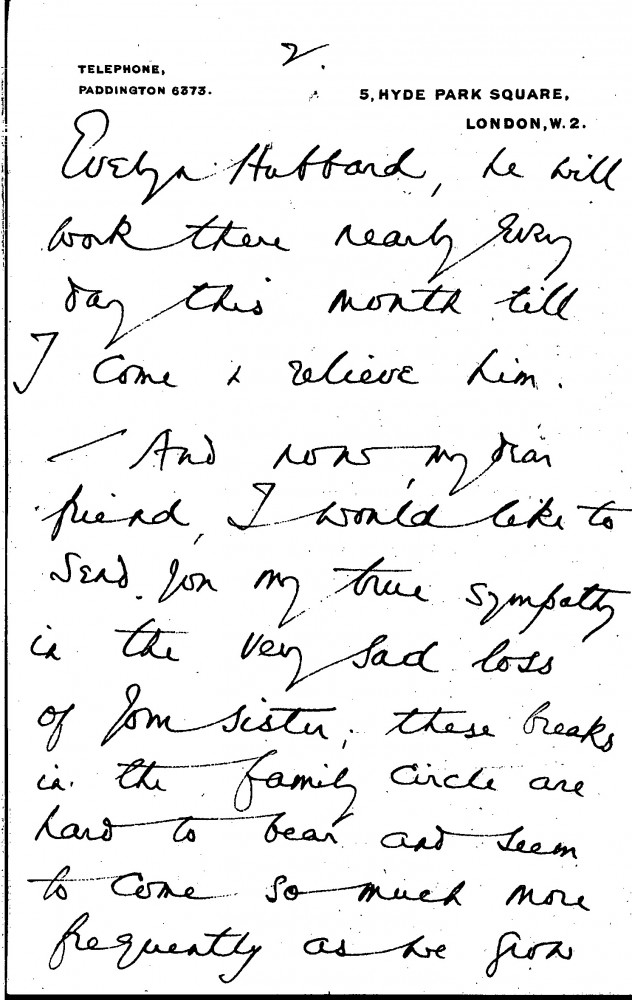 2.
TELEPHONE,
PADDINGTON 6373.
5, HYDE PARK SQUARE,
LONDON, W. 2.
Evelyn Hubbard, he will
work there nearly every
day this month till
I come & relieve him.
— And now, my dear
friend, I would like to
send you my true sympathy
in the very sad loss
of your sister; these breaks
in the family circle are
hard to bear and seem
to come so much more
frequently as we grow